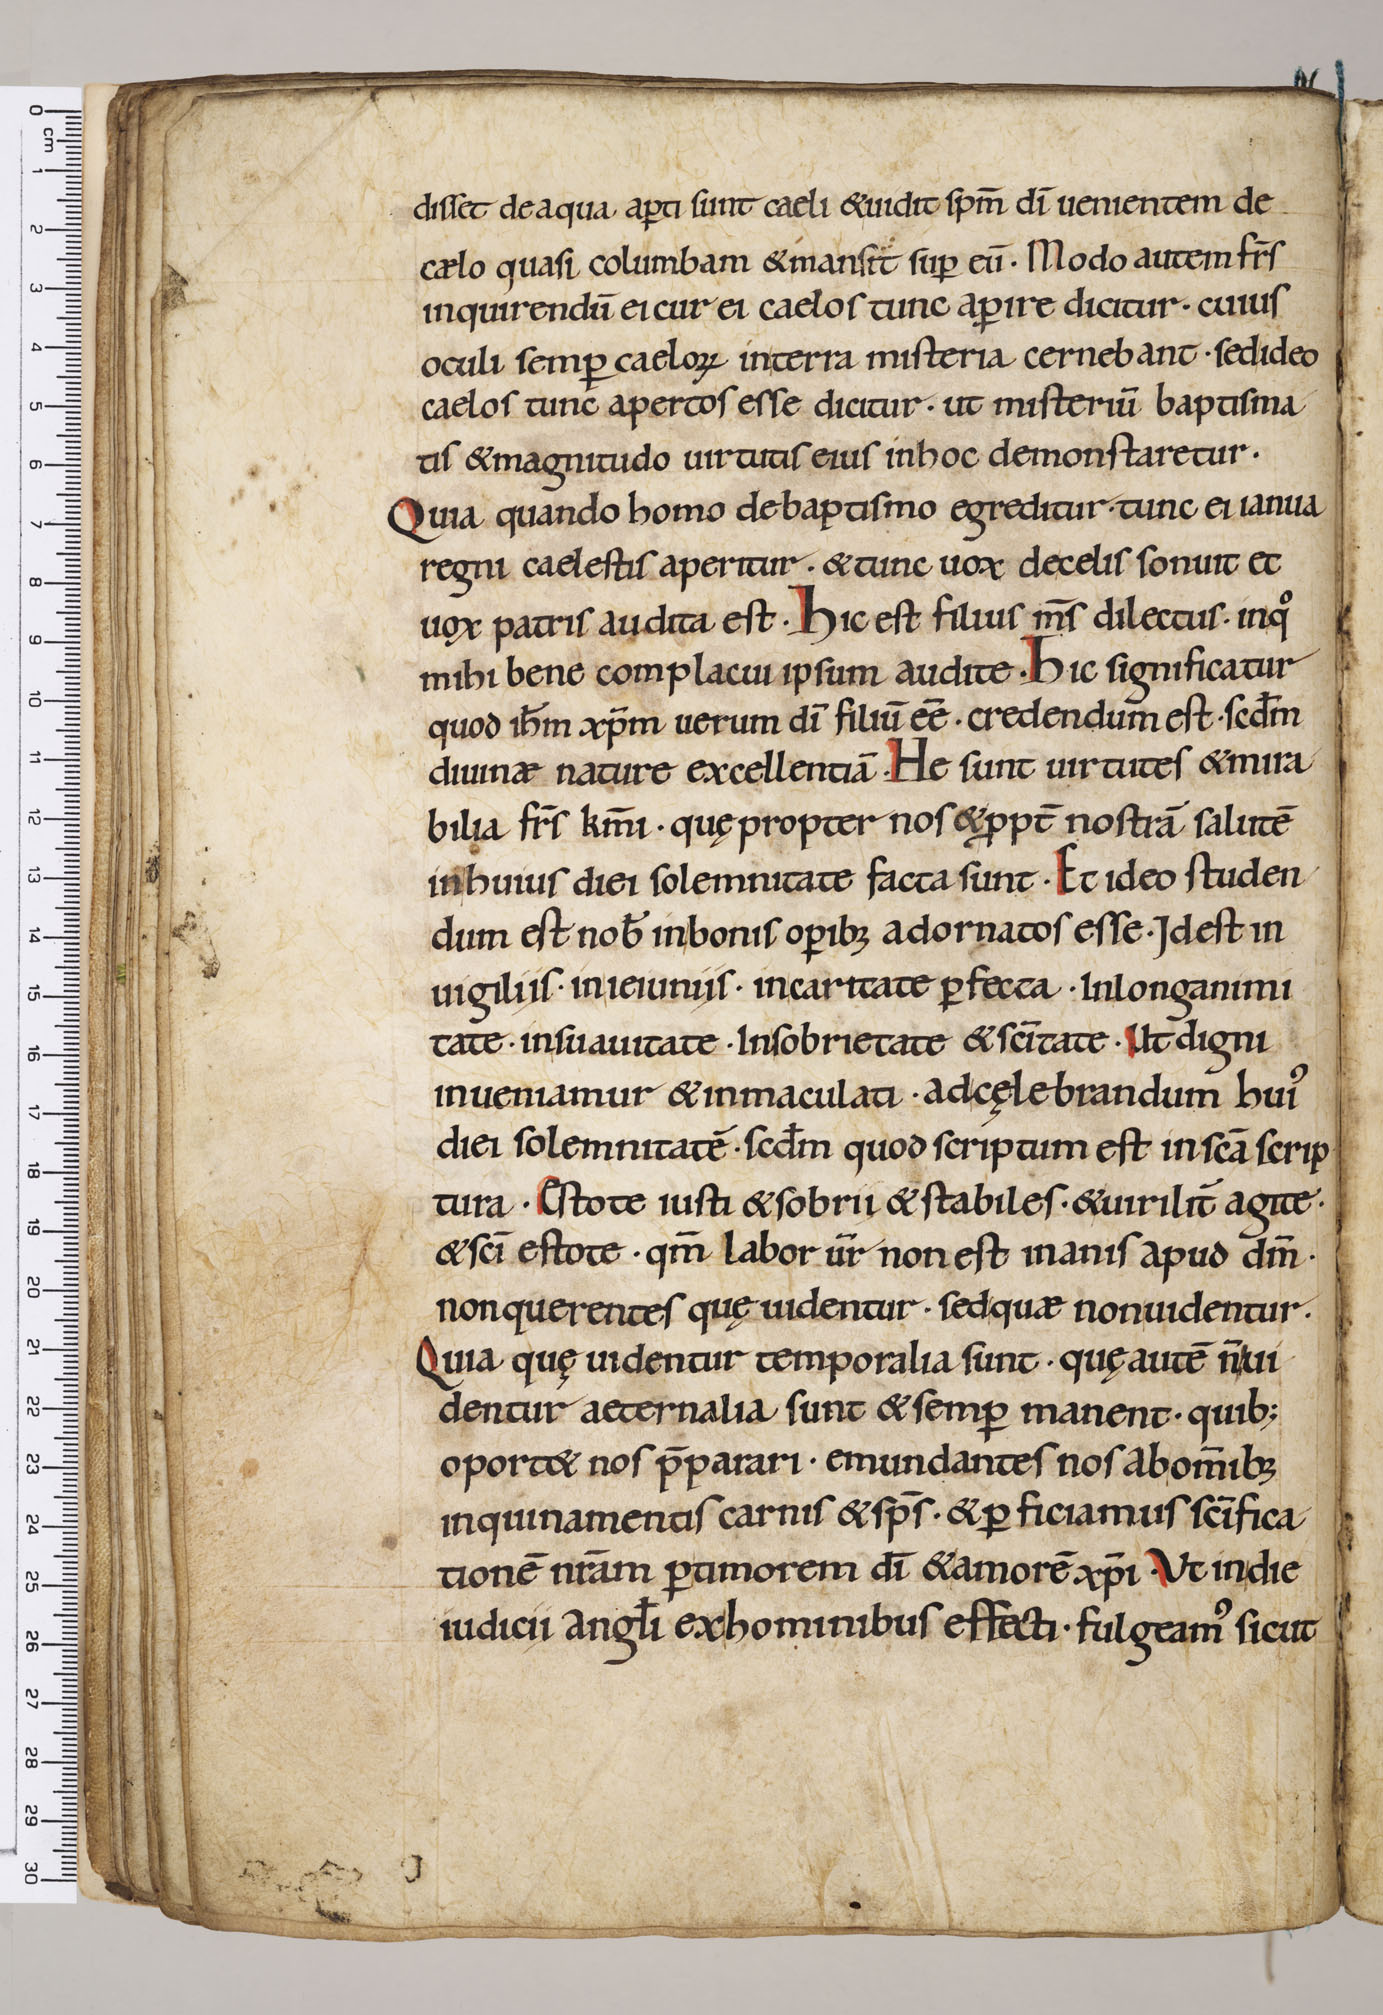 disset de aqua aꝑti sunt caeli &uidit sp̄m dī uenientem de
cælo quasi columbam &mansit suꝑ eū · Modo autem fr̄s
inquirendū ei cur ei caelos tunc aꝑire dicitur · cuius
oculi semꝑ caeloꝝ interra misteria cernebant · sedideo
caelos tunc apertos esse dicitur · ut misteriū baptisma
tis &magnitudo uirtutis eius inhoc demonstraretur ·
Quia quando homo debaptismo egreditur · tunc ei ianua
regni caelestis aperitur · &tunc uox decelis sonuit et
uox patris audita est · Hic est filius m̄s dilectus · inqͦ
mihi bene complacui ipsum audite · Hic significatur
quod ih̄m xp̄m uerum dī filiū ēē · credendum est · scd̄m
diuinæ nature excellentiā · He sunt uirtutes &mira
bilia fr̄s km̄i · quę propter nos &ꝓpt̄ nostrā salutē
inhuius diei solemnitate facta sunt · Et ideo studen
dum est nob̄ inbonis oꝑibꝫ adornatos esse · Idest in
uigiliis · inieiuniis · incaritate ꝑfecta · Inlonganimi
tate · insuauitate · Insobrietate &sc̄itate · Ut digni
inueniamur &inmaculati · adcęlebrandum huiꝰ
diei solemnitatē · scd̄m quod scriptum est inscā scrip
tura · Estote iusti &sobrii &stabiles · &uirilit̄ agite ·
&scī estote · qm̄ labor ur̄ non est inanis apud dm̄ ·
nonquerentes quę uidentur · sedquæ nonuidentur ·
Quia quę uidentur temporalia sunt · quę autē n̄ ui
dentur aeternalia sunt &semꝑ manent · quib;
oport& nos p̄parari · emundantes nos abom̄ibꝫ
inquinamentis carnis &sp̄s · &ꝑficiamus sc̄ifica
tionē nr̄am ꝑtimorem dī &amorē xp̄i · Ut indie
iudicii angl̄i exhominibus effecti · fulgeamꝰ sicut